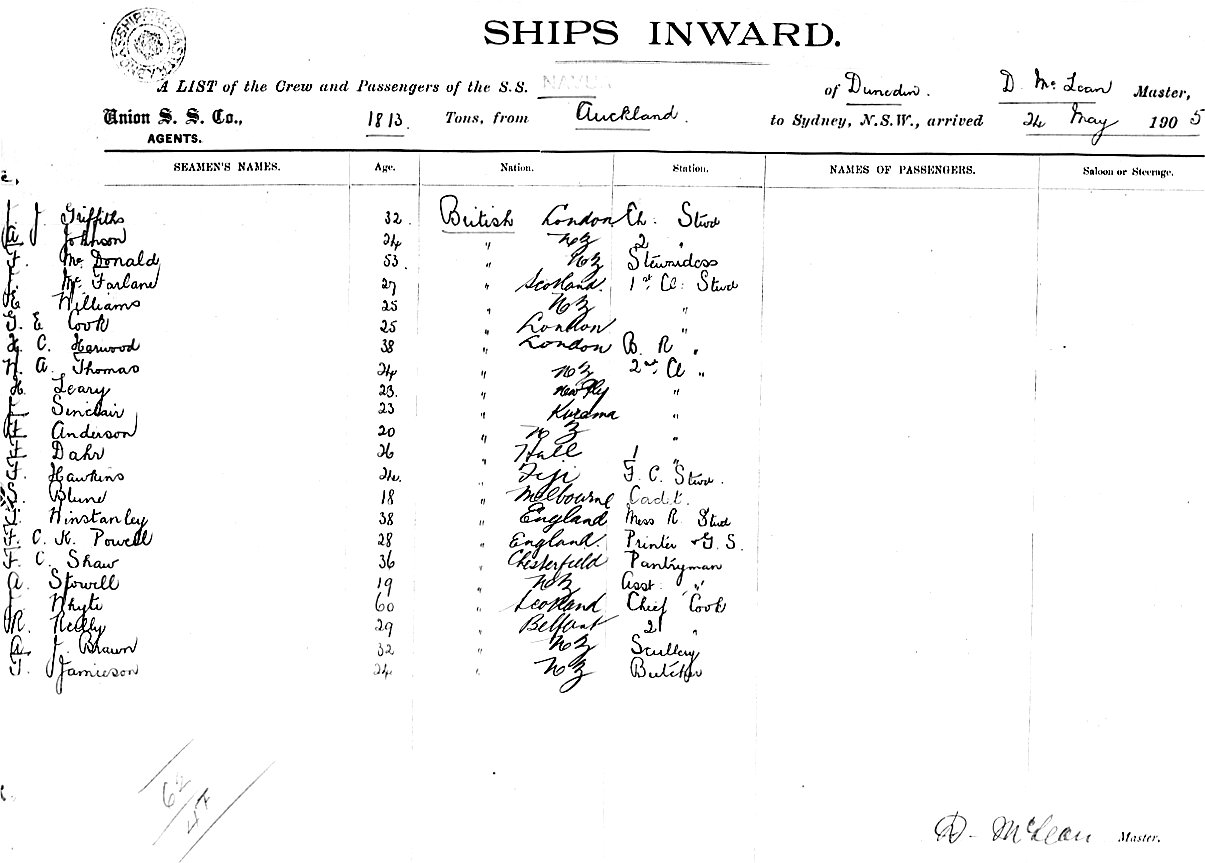 SHIPS INWARD.
A LIST of the Crew and Passengers of the S.S. NAVUA of Dunedin. D. McLean Master,
Union S. S. Co., AGENTS. 1813 Tons, from Auckland. to Sydney, N.S.W., arrived 24 May 1905
SEAMEN'S NAMES. Age. Nation. Station. NAMES OF PASSENGERS. Saloon or Steerage.
J. Griffiths 32 British London Ch. Stwd
A J Johnson 24 " NZ 2 "
Mc Donald 53 " NZ Stewardess
Mc Farlane 27 " Scotland. 1st Cl. Stwd
E Williams 25 " NZ "
E Cook 25 " London "
H C. Harwood 38 " London B. R "
H A. Thomas 24 " NZ 2nd Cl "
H. Leary 23 " "
Sinclair 23 " "
Anderson 20 " NZ "
Dahr 26 " Hull 1 "
Hawkins 24 " Fiji F. C. Stwd.
Blune 18 " Melbourne Cadet.
Winstanley 38 " England Mess R. Stwd
F. C. K. Powell 28 " England. Printer & G. S.
F. C. Shaw 36 " Chesterfield Pantryman
A. Stowell 19 " NZ Asst. "
Whyte 60 " Scotland Chief Cook
R. Reilly 29 " Belfast 2 "
A. J. Brawn 32 " NZ Scullery
Jamieson 24 " NZ Butcher
62
47
D. McLean Master.